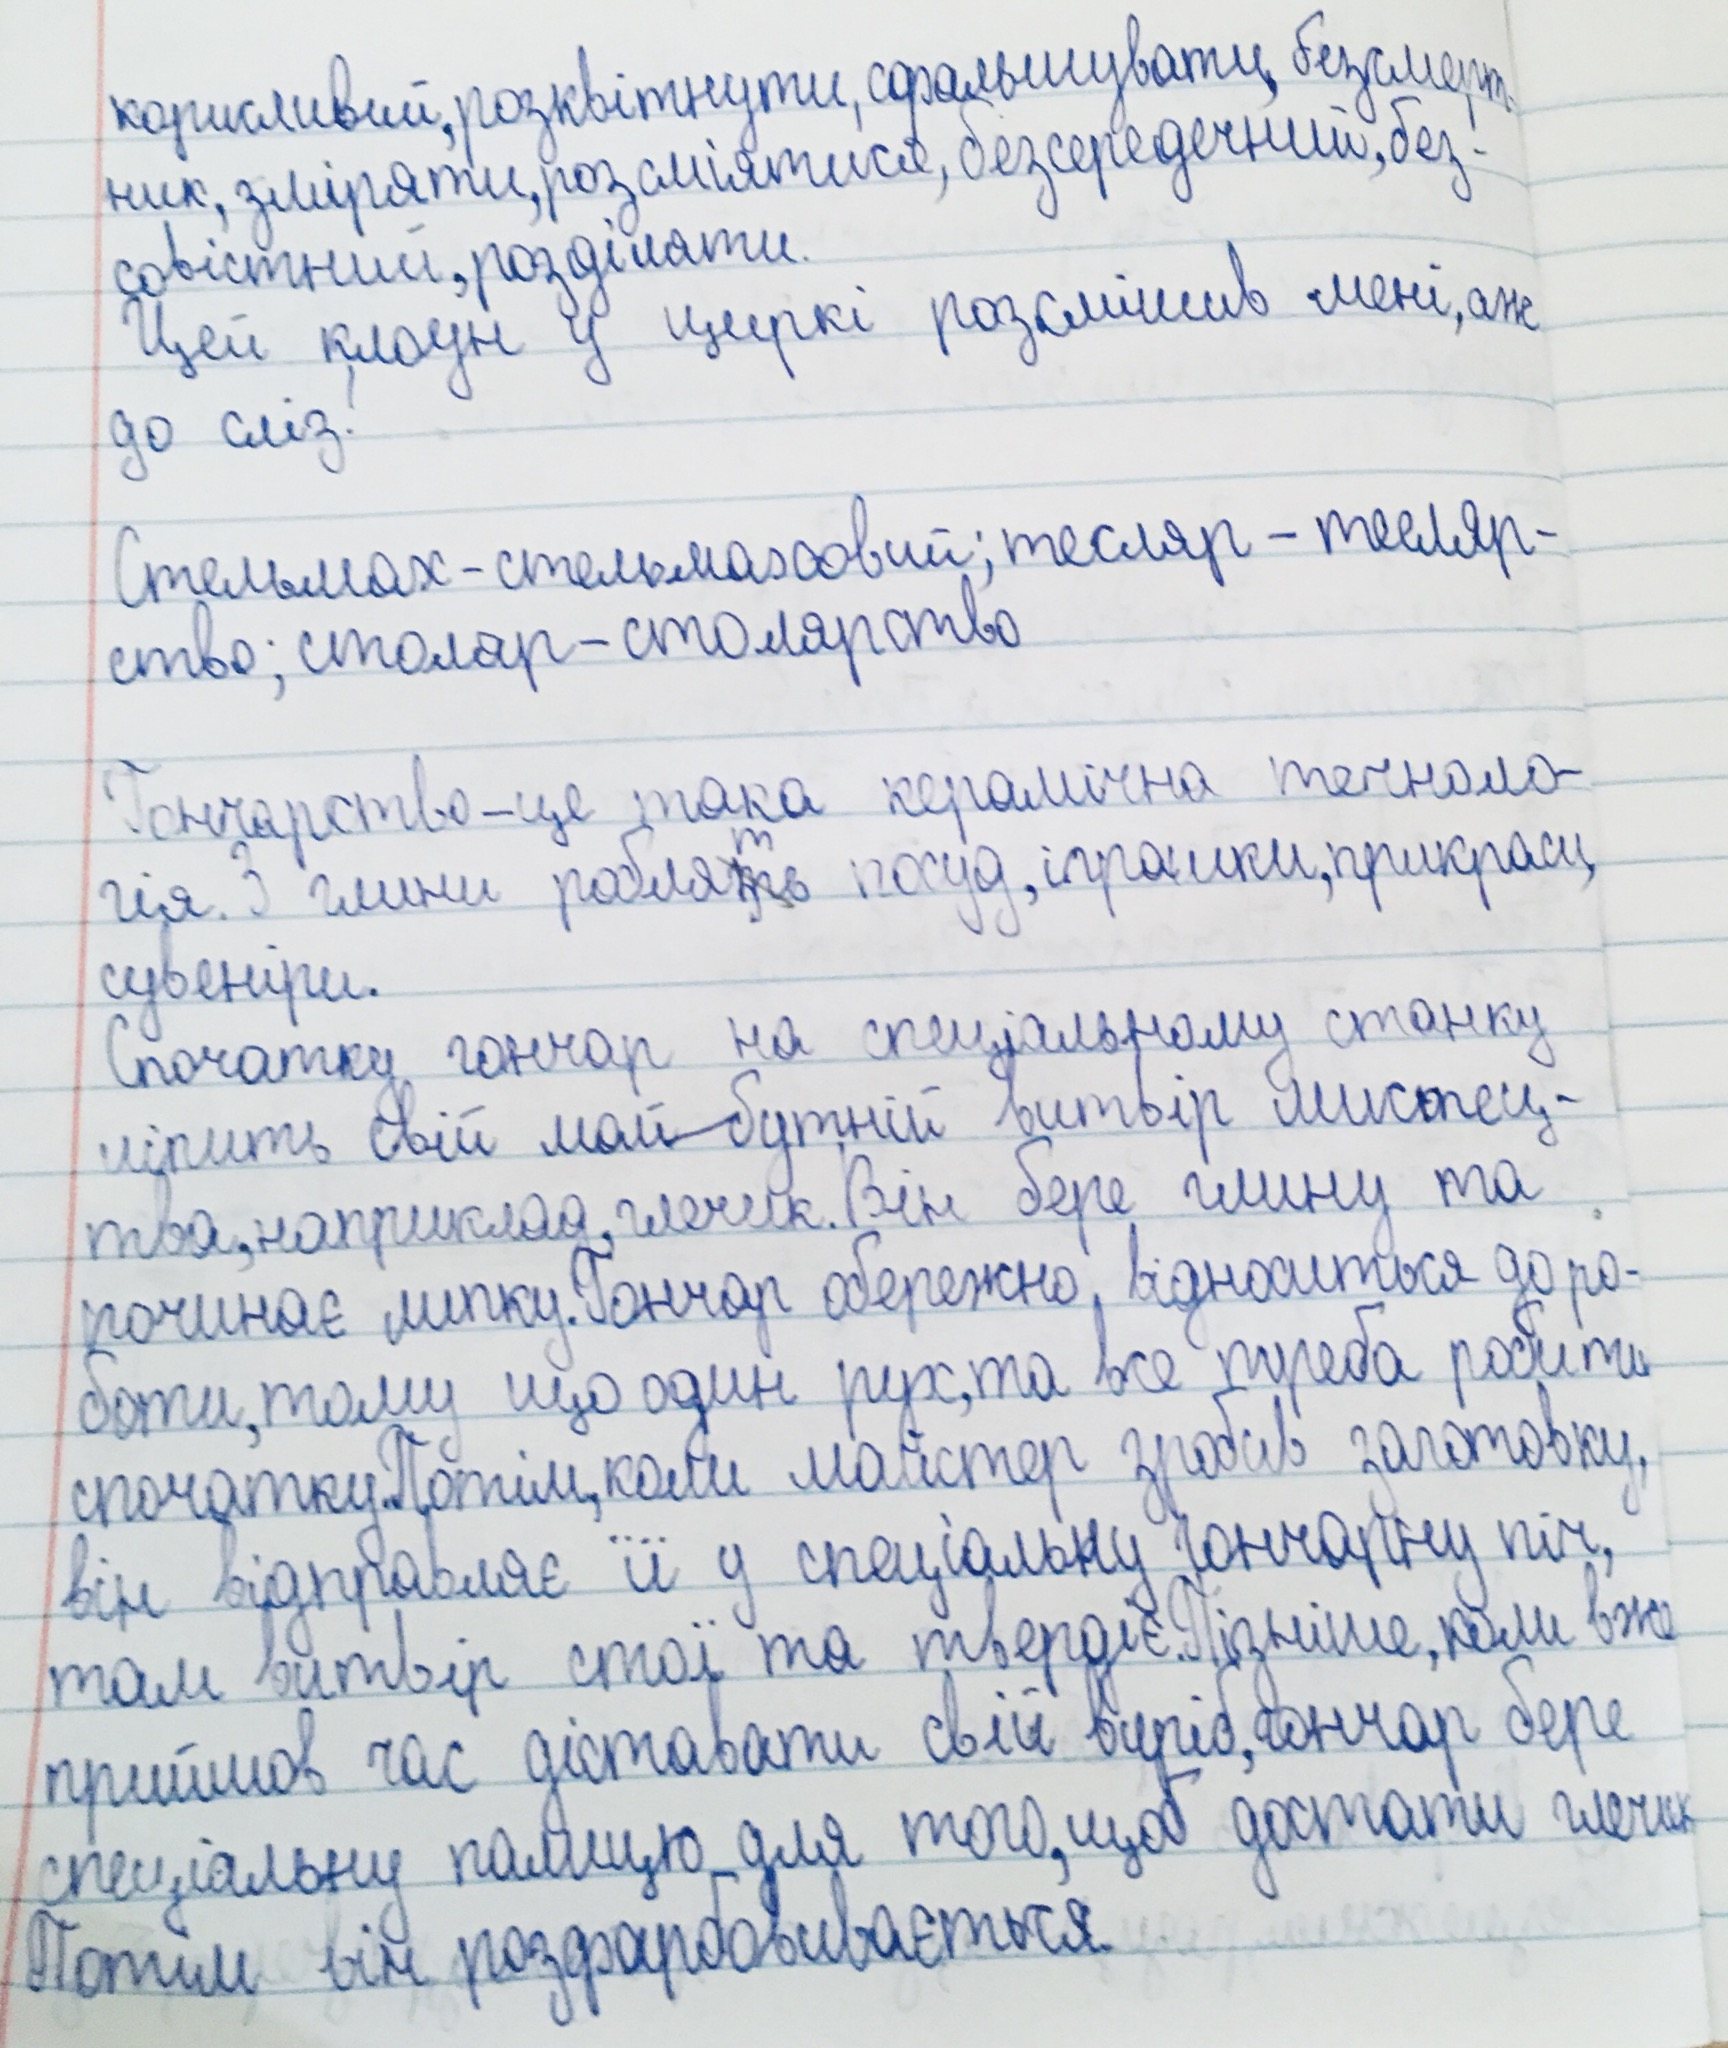 корисливий, розквітнути, сфальшувати, безсмерт-
ник, зміряти, розсміятися, безсередечний, без-
совістний, розділяти.
Цей клоун у циркі розсмішив мені, аж
до сліз!
Стельмах - стельмаховий; тесляр - тесляр-
ство; столяр - столярство
Гончарство - це така керамічна техноло-
гія. З глини роблять посуд, іграшки, прикраси,
сувеніри.
Спочатку гончар на спеціальному станку
ліпить свій май-бутній витвір мистец-
тва, наприклад, глечик. Він бере глину та
починає липку. Гончар обережно відноситься до ро-
боти, тому що один рух, та все треба робити
спочатку. Потім, коли майстер зробив заготовку,
він відправляє її у спеціальну гончарну піч,
там витвір стої та твердіє. Пізніше, коли вже
прийшов час діставати свій виріб, гончар бере
спеціальну палицю для того, щоб достати глечик
Потім він розфарбовивається.